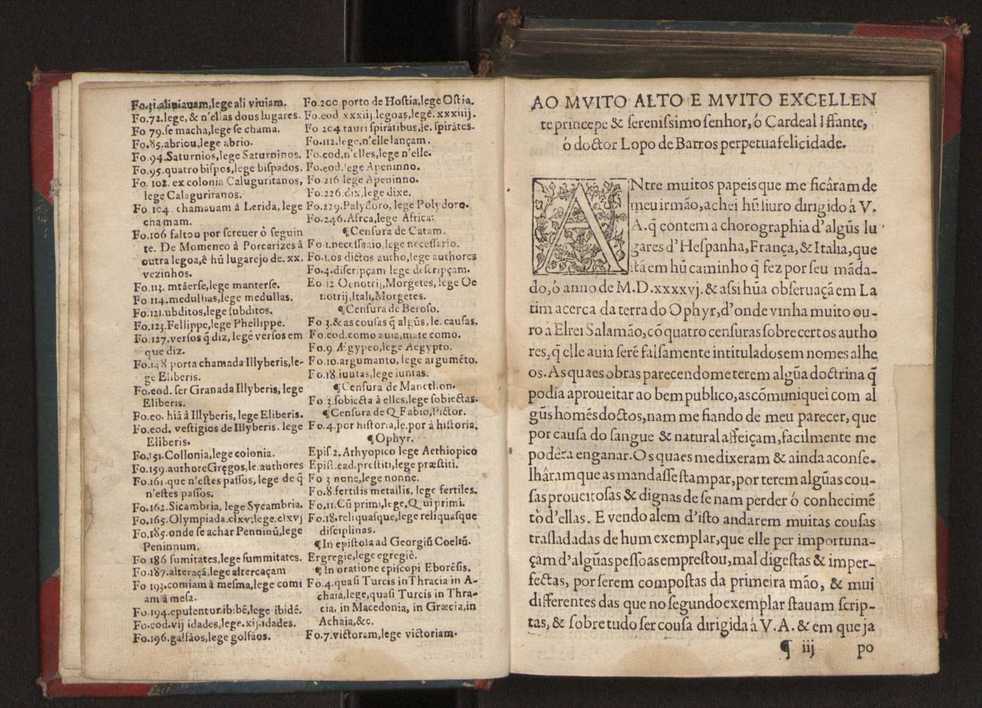 Fo.41.aliuiauam,lege ali viuiam.
Fo.72.lege, & n'ellas dous lugares.
Fo 79.se macha,lege se chama.
Fo.85.abriou,lege abrio.
Fo.94.Saturnios,lege Saturninos.
Fo.95.quatro bispos,lege bispados.
Fo. 102. ex colonia Caluguritanos,
lege Calaguritanos.
Fo.104 chamauam à Lerida, lege
chamam.
Fo.106 faltou por screuer ò seguin
te. De Momeneo à Porcarizes à
outra legoa,é hũ lugarejo de.xx.
vezinhos.
Fo.113. mtãerse,lege manterse.
Fo 114.medulhas,lege medullas.
Fo.121.ubditos,lege subditos.
Fo.123.Fellippe,lege Phellippe.
Fo.127.versos q̃ diz, lege versos em
que diz.
Fo.148 porta chamada Illyberis,le-
ge Eliberis.
Fo.eod. ser Granada Illyberis, lege
Eliberis.
Fo.eo. hiã à Illyberis, lege Eliberis.
Fo.eod. vestigios de Illyberis. lege
Eliberis.
Fo.151.Collonia,lege colonia.
Fo.159.authore Gregos,le.authores
Fo.161.que n'estes passos, lege de q̃
n'estes passos.
Fo.162.Sicambria, lege Sycambria.
Fo.165.Olympiada.clxv;lege.clxvj
Fo.185.onde se achar Penninũ,lege
Peninnum.
Fo 186 sumitates,lege summitates.
Fo.187.alteraçã,lege altercaçam
Fo 193.comiam à mesma,lege comi
am à mesa.
Fo.194.epulentur.ibibẽ,lege ibidẽ.
Fo.eod.vij idades,lege.xij.idades.
Fo.196.galsãos,lege golsãos.
Fo.200 porto de Hostia,lege Ostia.
Fo.eod xxxiij.legoas,lege.xxxiiij.
Fo 204 tauri spiratibus,le.spirãtes.
Fo.112.lege,n'elle lançam.
Fo.eod.n'elles,lege n'elle.
Fo.eod.lege Apeninno.
Fo 216 lege Apeninno.
Fo.226.dix,lege dixe.
Fo.229.Palydoro, lege Polydoro.
Fo.246.Afrca,lege Africa.
¶Censura de Catam.
Fo 1.necessaaio,lege necessario.
Fo 1.os dictos autho,lege authores
Fo.4.discripçam lege descripçam.
Fo 12 Oenotrij,Morgetes, lege Oe
notrij,Itali,Morgetes.
¶Censura de Beroso.
Fo 3.&as cousas q̃ algũs, le. causas.
Fo.eod.como auia,mate como.
Fo.9 Ægypeo,lege Aegypto.
Fo.10.argumanto, lege argumẽto.
Fo.18 iuutas,lege iuntas.
¶Censura de Manethon.
Fo 2.sobiecta à elles,lege sobiectas.
¶Censura de Q.Fabio,Pictor.
Fo.4.por historia,le.por à historia.
¶Ophyr.
Epis 2. Athyopico lege Aethiopico
Epist.ead.prestiti,lege præstiti.
Fo 3 none,lege nonne.
Fo.8.fertilis metallis, lege fertiles.
Fo.11.Cũ primi,lege,Qui primi.
Fo.18.reliquasque,lege reliquasque
disciplinas.
¶In epistola ad Georgiũ Coeliũ.
Ergregie,lege egregiè.
¶In oratione episcopi Eborẽsis.
Fo.4.quasi Turcis in Thracia in A-
chaia,lege,quasi Turcis in Thra-
cia, in Macedonia, in Græcia,in
Achaia,&c.
Fo.7.victoram,lege victoriam.
AO MVITO ALTO E MVITO EXCELLEN
te princepe & serenissimo senhor, ó Cardeal Iffante,
ò doctor Lopo de Barros perpetua felicidade.
ANtre muitos papeis que me ficâram de
meu irmão, achei hũ liuro dirigido à V.
A. q̃ contem a chorographia d'algũs lu
gares d'Hespanha, França, & Italia, que
stã em hũ caminho q̃ fez por seu mãda-
do, ó anno de M.D.xxxxvj. & assi hũa obseruaçã em La
tim acerca da terra do Ophyr, d'onde vinha muito ou-
ro à Elrei Salamão, cõ quatro censuras sobre certos autho
res, q̃ elle auia serẽ falsamente intitulados em nomes alhe
os. As quaes obras parecendome terem algũa doctrina q̃
podia aproueitar ao bem publico, as cõmuniquei com al
gũs homẽs doctos, nam me fiando de meu parecer, que
por causa do sangue & natural affeiçam, facilmente me
podéra enganar. Os quaes me dixeram & ainda aconse-
lhâram que as mandasse stampar, por terem algũas cou-
sas proueitosas & dignas de se nam perder ó conhecimẽ
to d'ellas. E vendo alem d'isto andarem muitas cousas
trasladadas de hum exemplar, que elle per importuna-
çam d'algũas pessoas emprestou, mal digestas & imper-
fectas, por serem compostas da primeira mão, & mui
differentes das que no segundo exemplar stauam scrip-
tas, & sobre tudo ser cousa dirigida à V. A. & em que ja
¶ iij po